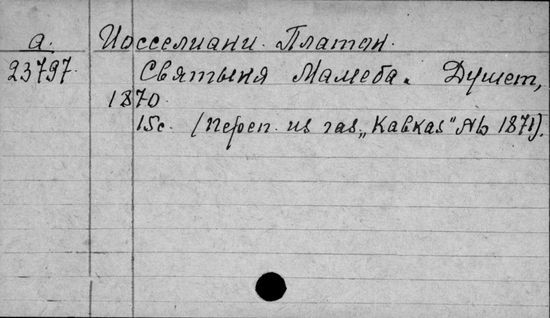 а. Иосселиани. Платон.
23797. Святыня Мамеба. Душет,
1870.
15с. (переп. из газ. „Кавказ" № 1871).